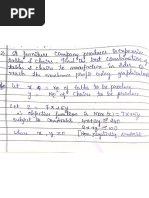 A furniture company produces inexpensive
tables & chairs. Find the best combination of
tables & chairs to manufacture in order to
reach the maximum profit using graphical
Let x = No of table to be produce
y = No of Chairs to be produce
Let Z = 7x + 5y
∴ objective function is Max (z) = 7x + 5y
subject to constraint
where x, y ≥ 0